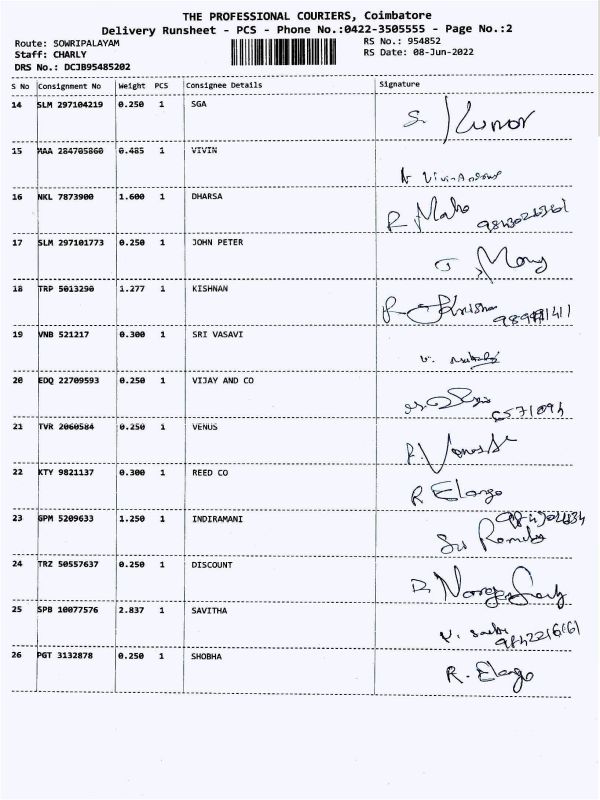 THE PROFESSIONAL COURIERS, Coimbatore
Delivery Runsheet - PCS - Phone No.:0422-3505555 - Page No.:2
Route: SOWRIPALAYAM RS No.: 954852
Staff: CHARLY RS Date: 08-Jun-2022
DRS No.: DCJB95485202
S No Consignment No Weight PCS Consignee Details Signature
14 SLM 297104219 0.250 1 SGA S. Kumar
15 MAA 284705860 0.485 1 VIVIN
16 NKL 7873900 1.600 1 DHARSA R Maho
17 SLM 297101773 0.250 1 JOHN PETER J Mary
18 TRP 5013290 1.277 1 KISHNAN
19 VNB 521217 0.300 1 SRI VASAVI
20 EDQ 22709593 0.250 1 VIJAY AND CO
21 TVR 2060584 0.250 1 VENUS
22 KTY 9821137 0.300 1 REED CO R Elango
23 GPM 5209633 1.250 1 INDIRAMANI
24 TRZ 50557637 0.250 1 DISCOUNT
25 SPB 10077576 2.837 1 SAVITHA
26 PGT 3132878 0.250 1 SHOBHA R. Elango